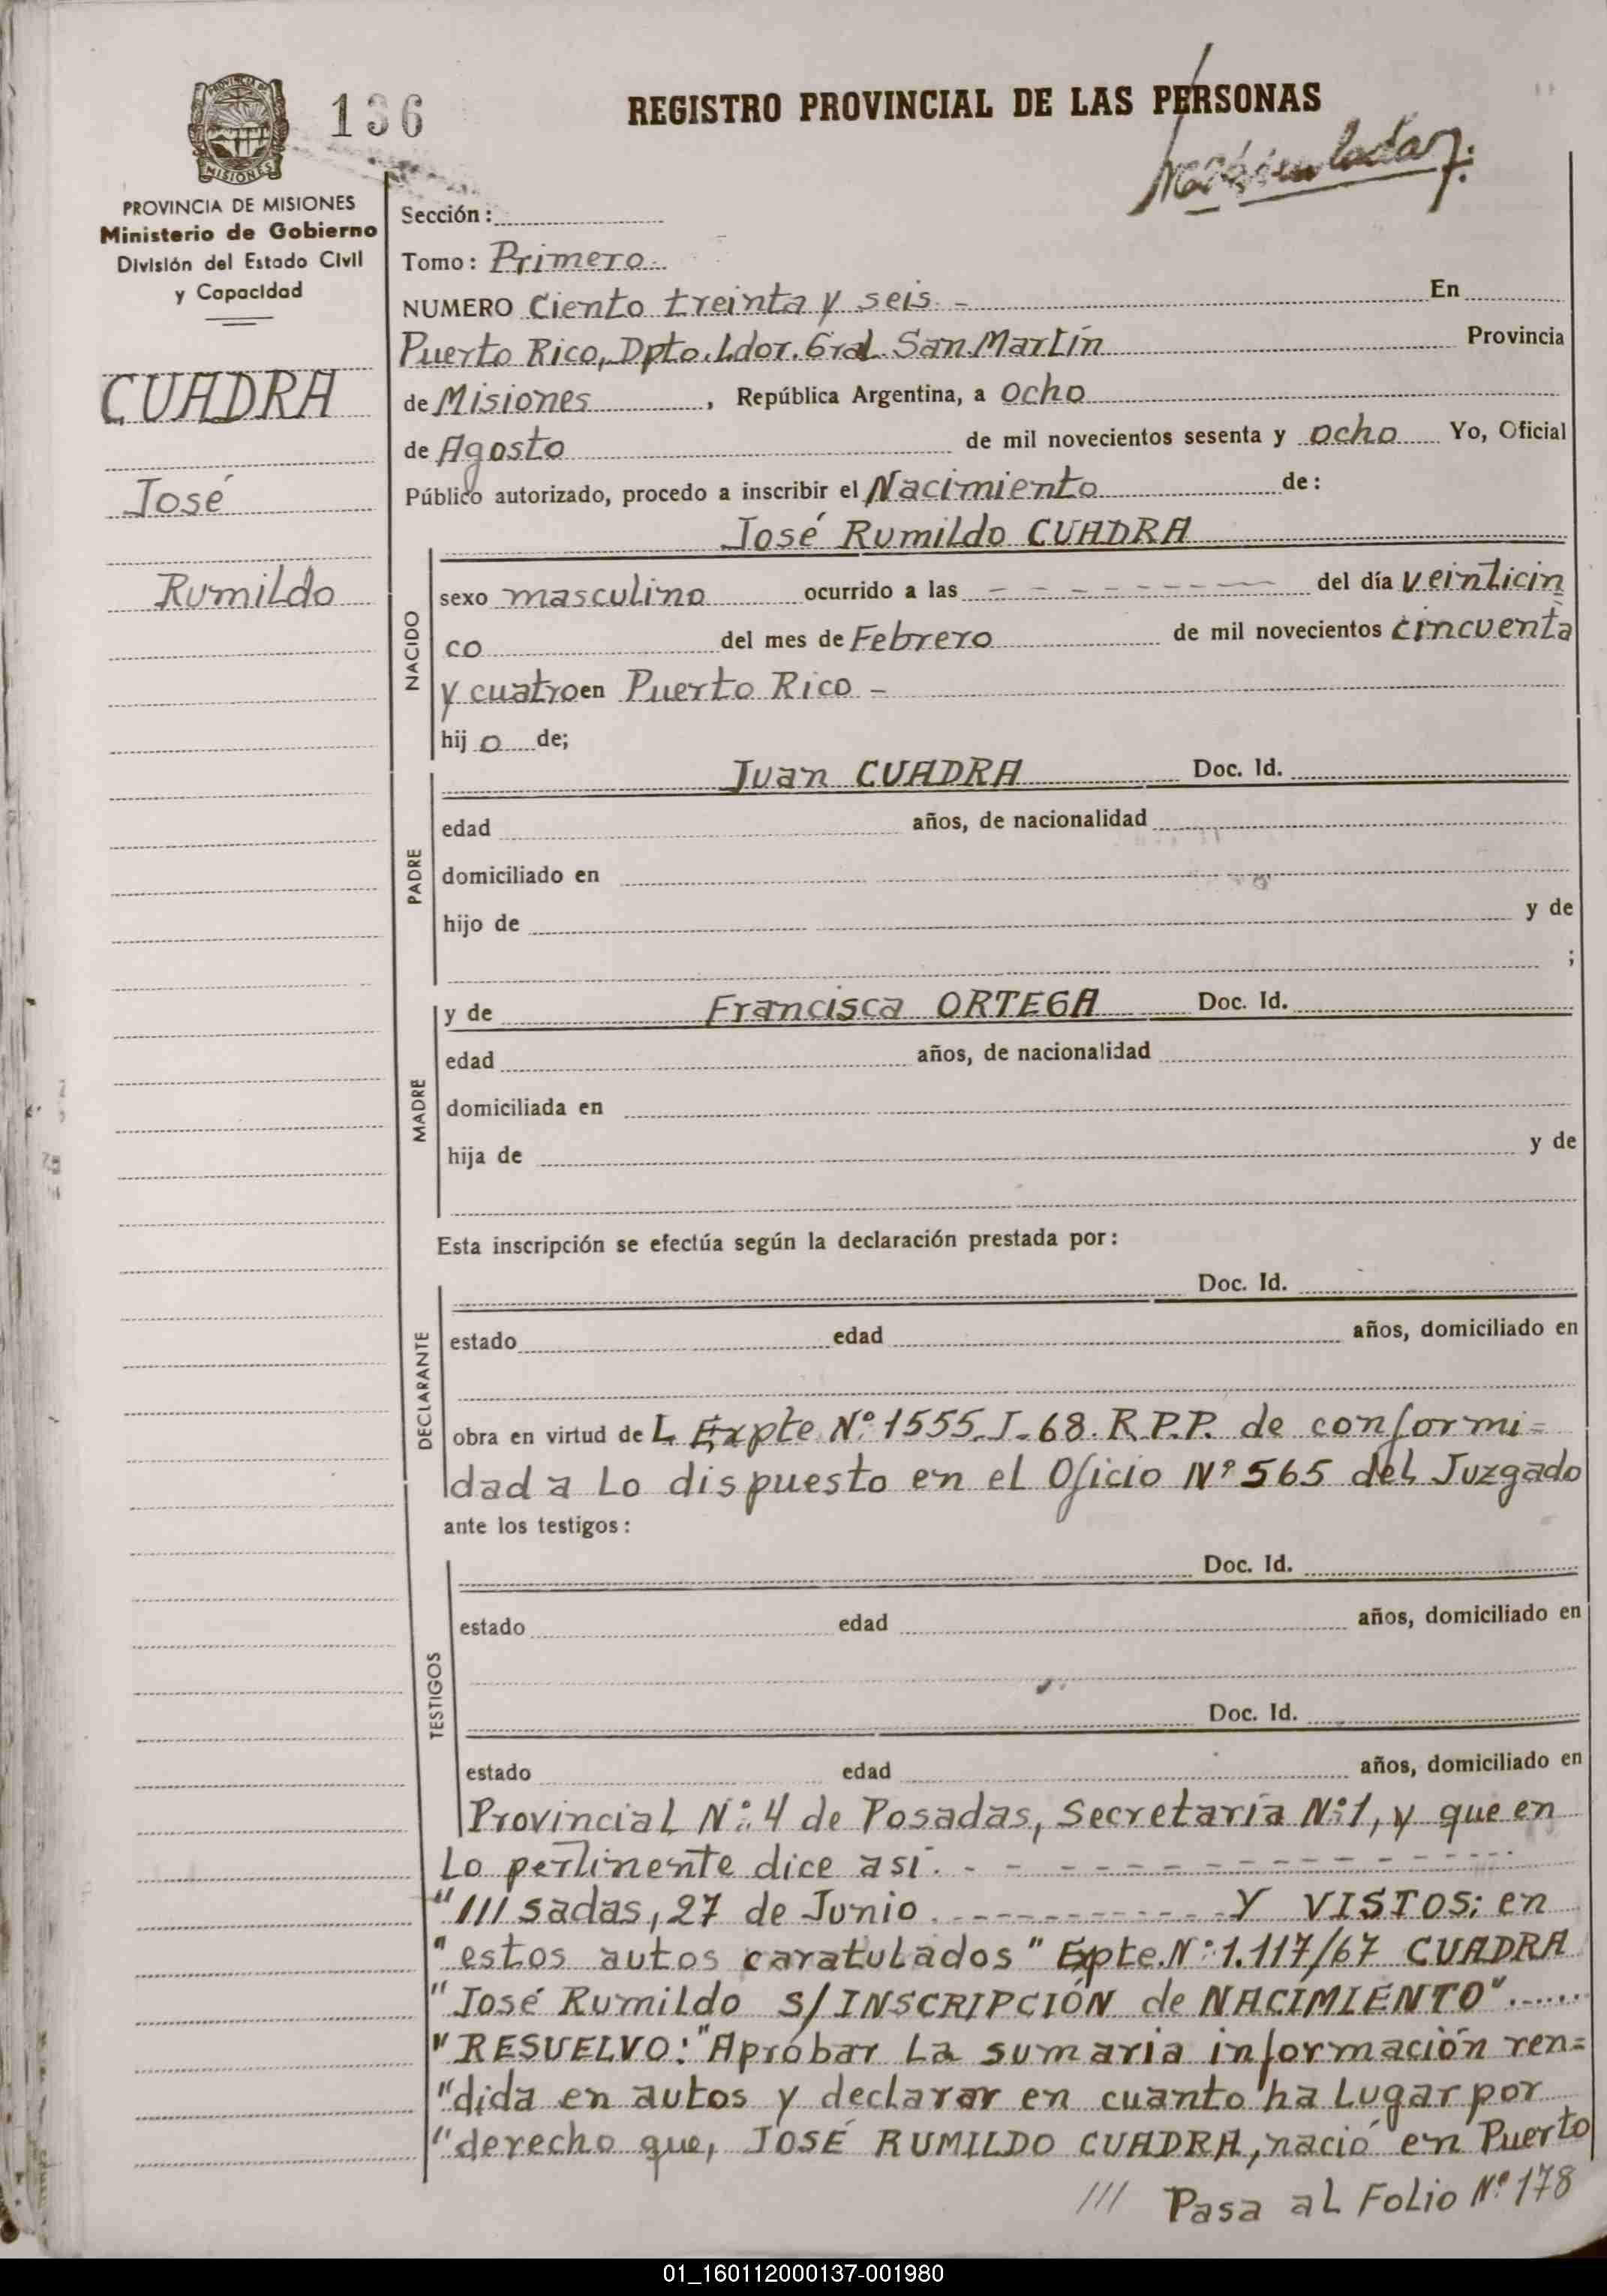 PROVINCIA DE MISIONES
136
REGISTRO PROVINCIAL DE LAS PERSONAS
PROVINCIA DE MISIONES
Ministerio de Gobierno
División del Estado Civil
y Capacidad
CUADRA
José
Rumildo
Sección:
Tomo: Primero
NUMERO Ciento treinta y seis - En
Puerto Rico, Dpto. Ldor. Gral. San Martín Provincia
de Misiones, República Argentina, a ocho
de Agosto de mil novecientos sesenta y ocho Yo, Oficial
Público autorizado, procedo a inscribir el Nacimiento de:
José Rumildo CUADRA
NACIDO
sexo masculino ocurrido a las - - - - - - - del día veinticin
co del mes de Febrero de mil novecientos cincuenta
y cuatro en Puerto Rico -
hij o de;
PADRE
Juan CUADRA Doc. Id.
edad años, de nacionalidad
domiciliado en
hijo de y de
;
MADRE
y de Francisca ORTEGA Doc. Id.
edad años, de nacionalidad
domiciliada en
hija de y de
Esta inscripción se efectúa según la declaración prestada por:
DECLARANTE
Doc. Id.
estado edad años, domiciliado en
obra en virtud de L Expte Nº 1555.J-68. R.P.P. de conformi=
dad a lo dispuesto en el Oficio Nº 565 del Juzgado
ante los testigos:
TESTIGOS
Doc. Id.
estado edad años, domiciliado en
Doc. Id.
estado edad años, domiciliado en
Provincial Nº 4 de Posadas, Secretaría Nº 1, y que en
lo pertinente dice así. - - - - - - - - - - -
"///sadas, 27 de Junio . - - - - - - - - - Y VISTOS: en
"estos autos caratulados "Expte. Nº 1.117/67 CUADRA
"José Rumildo S/INSCRIPCIÓN de NACIMIENTO"......
"RESUELVO: "Aprobar la sumaria información ren=
"dida en autos y declarar en cuanto ha lugar por
"derecho que, JOSÉ RUMILDO CUADRA, nació en Puerto
/// Pasa al Folio Nº 178
01_160112000137-001980